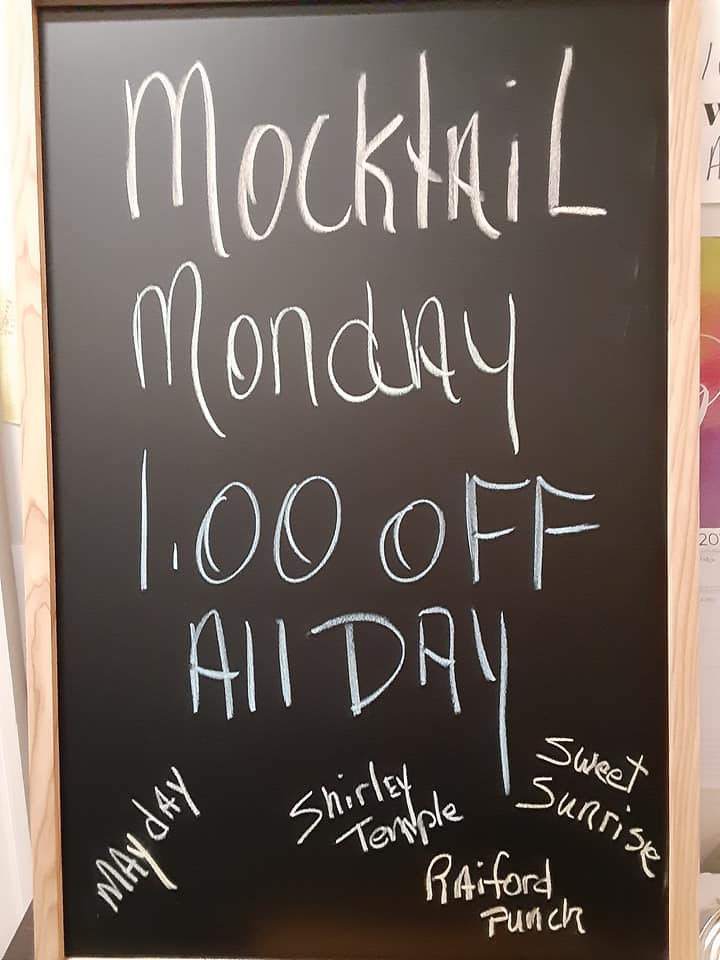 Mocktail
Monday
1.00 OFF
All DAY
MAYdAY
Shirley
Temple
Sweet
Sunrise
RAiford
Punch
20